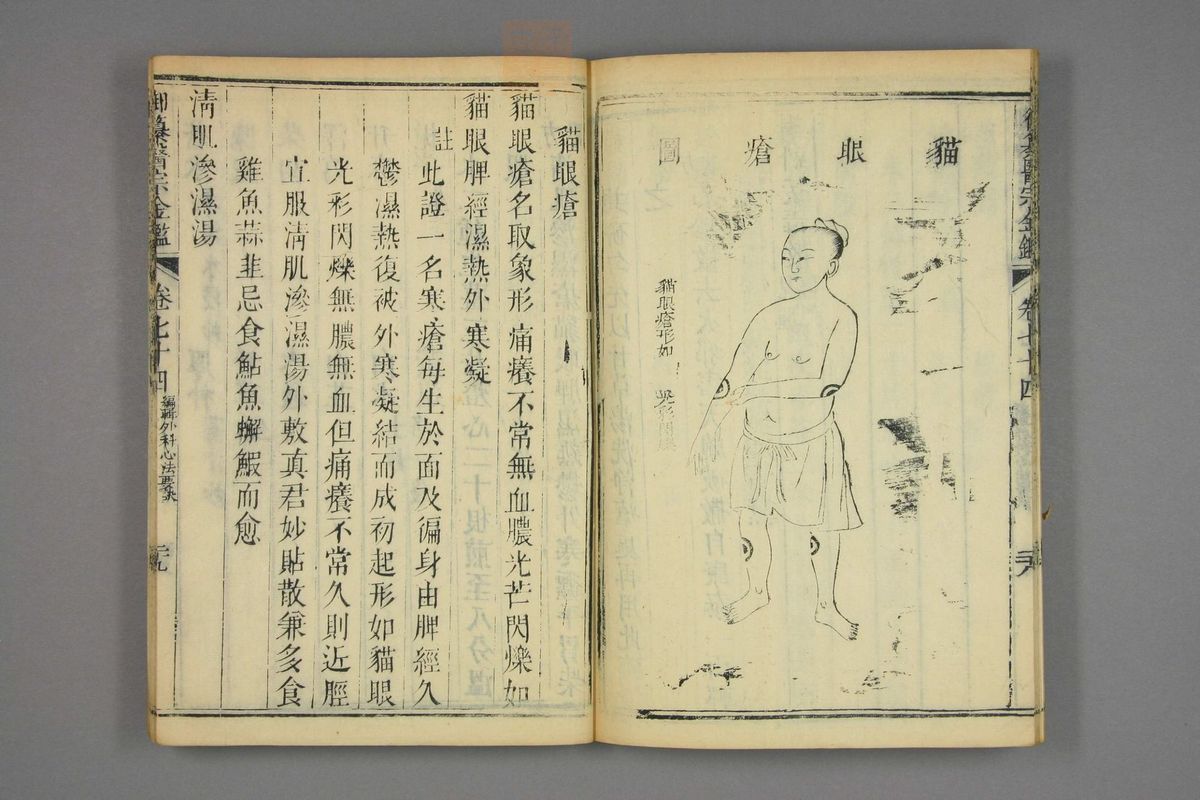 貓眼瘡圖
貓眼瘡形如
光彩閃爍
卷七十四
貓眼瘡
貓眼瘡名取象形痛癢不常無血膿光芒閃爍如
貓眼脾經濕熱外寒凝
註此證一名寒瘡每生於面及徧身由脾經久
鬱濕熱復被外寒凝結而成初起形如貓眼
光彩閃爍無膿無血但痛癢不常久則近脛
宜服清肌滲濕湯外敷真君妙貼散兼多食
雞魚蒜韭忌食鮎魚蠏鰕而愈
清肌滲濕湯
御纂醫宗金鑑
卷七十四
編輯外科心法要訣